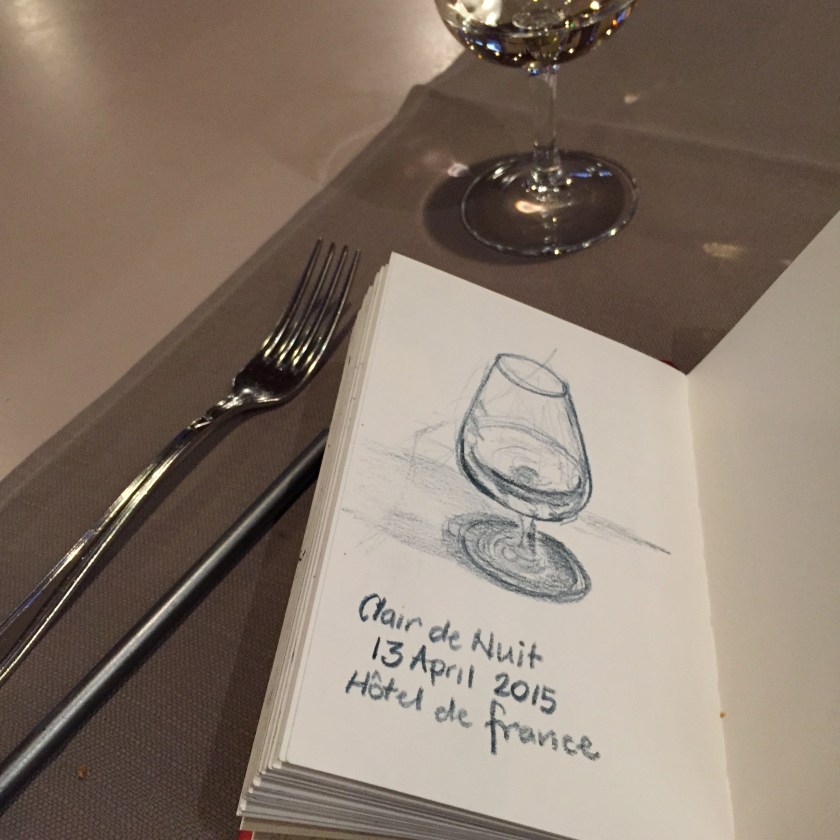 Clair de Nuit
13 April 2015
Hôtel de france